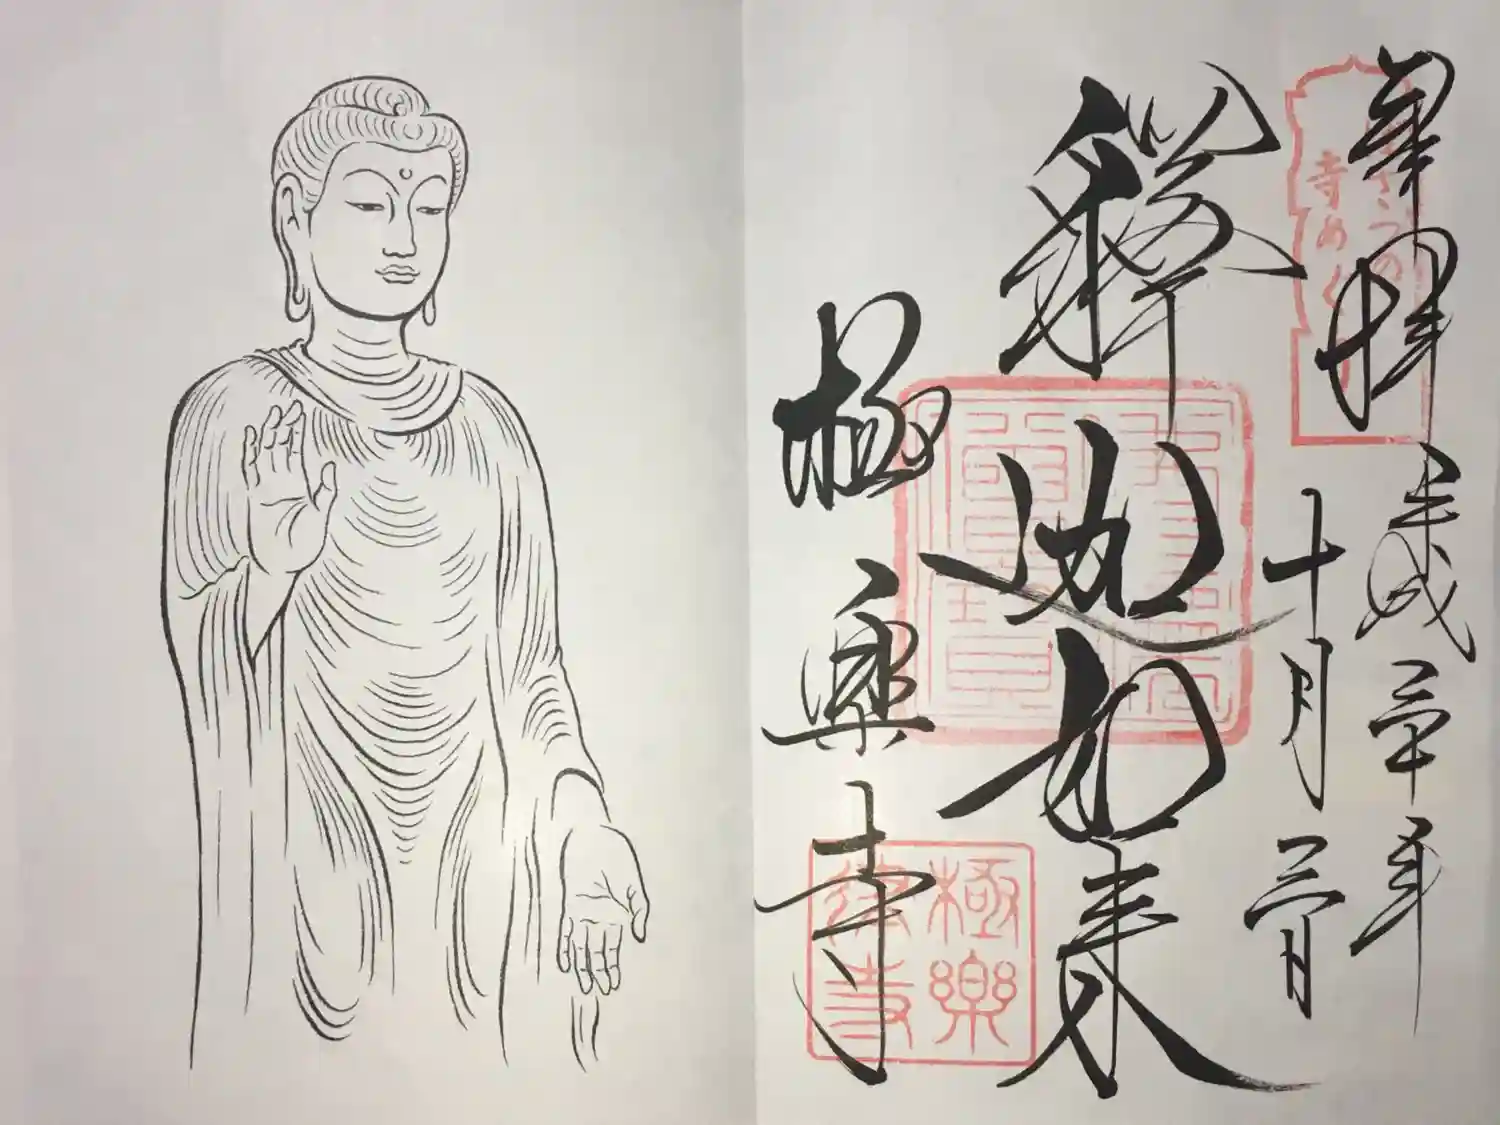 奉拝
平成三十年
十月三日
ぼさつの
寺めぐり
釋迦如来
極樂寺
極樂
律寺